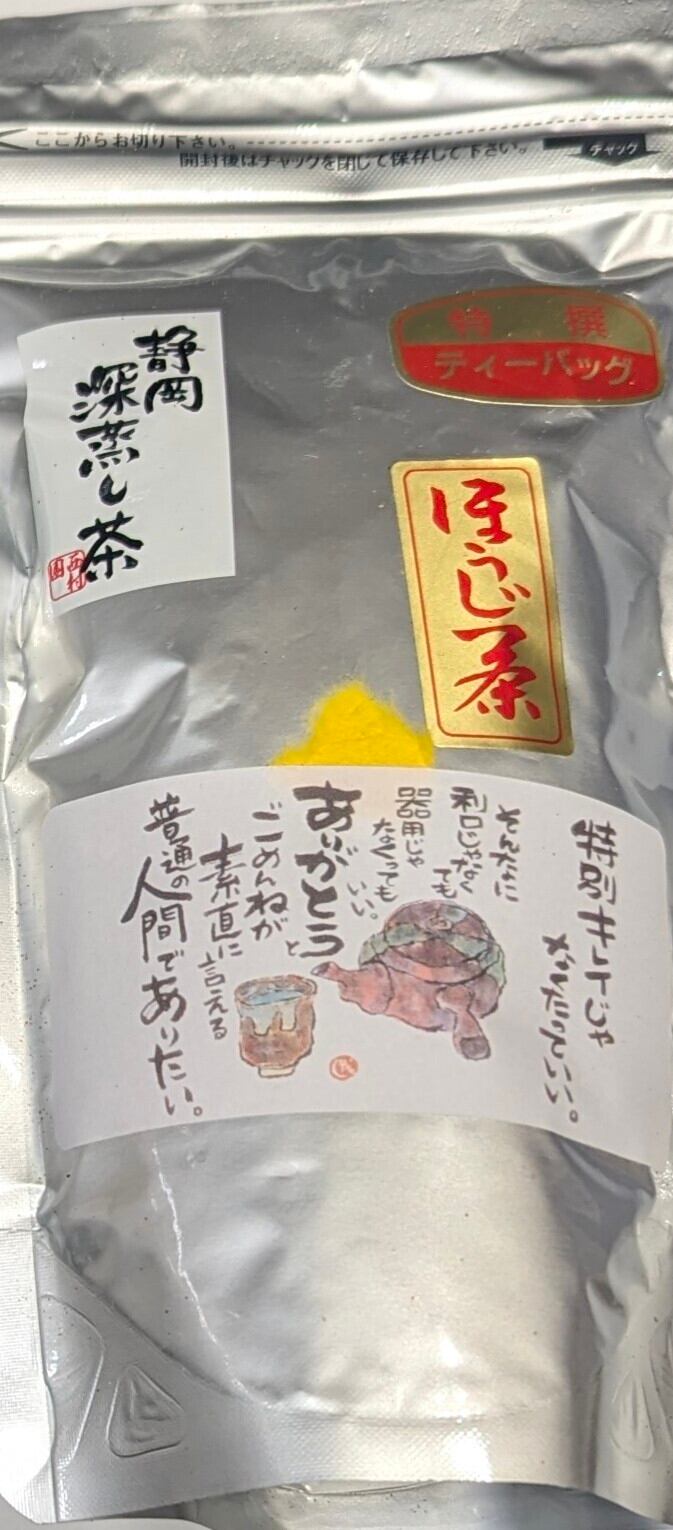 ここからお切り下さい。
開封後はチャックを閉じて保存して下さい。
チャック
特撰
ティーバッグ
静岡
深蒸し茶
西村園
ほうじ茶
特別キレイじゃ
なくたっていい。
そんなに
利口じゃなく
ても
器用じゃ
なくっても
いい。
ありがとうと
ごめんねが
素直に言える
普通の
人間でありたい。